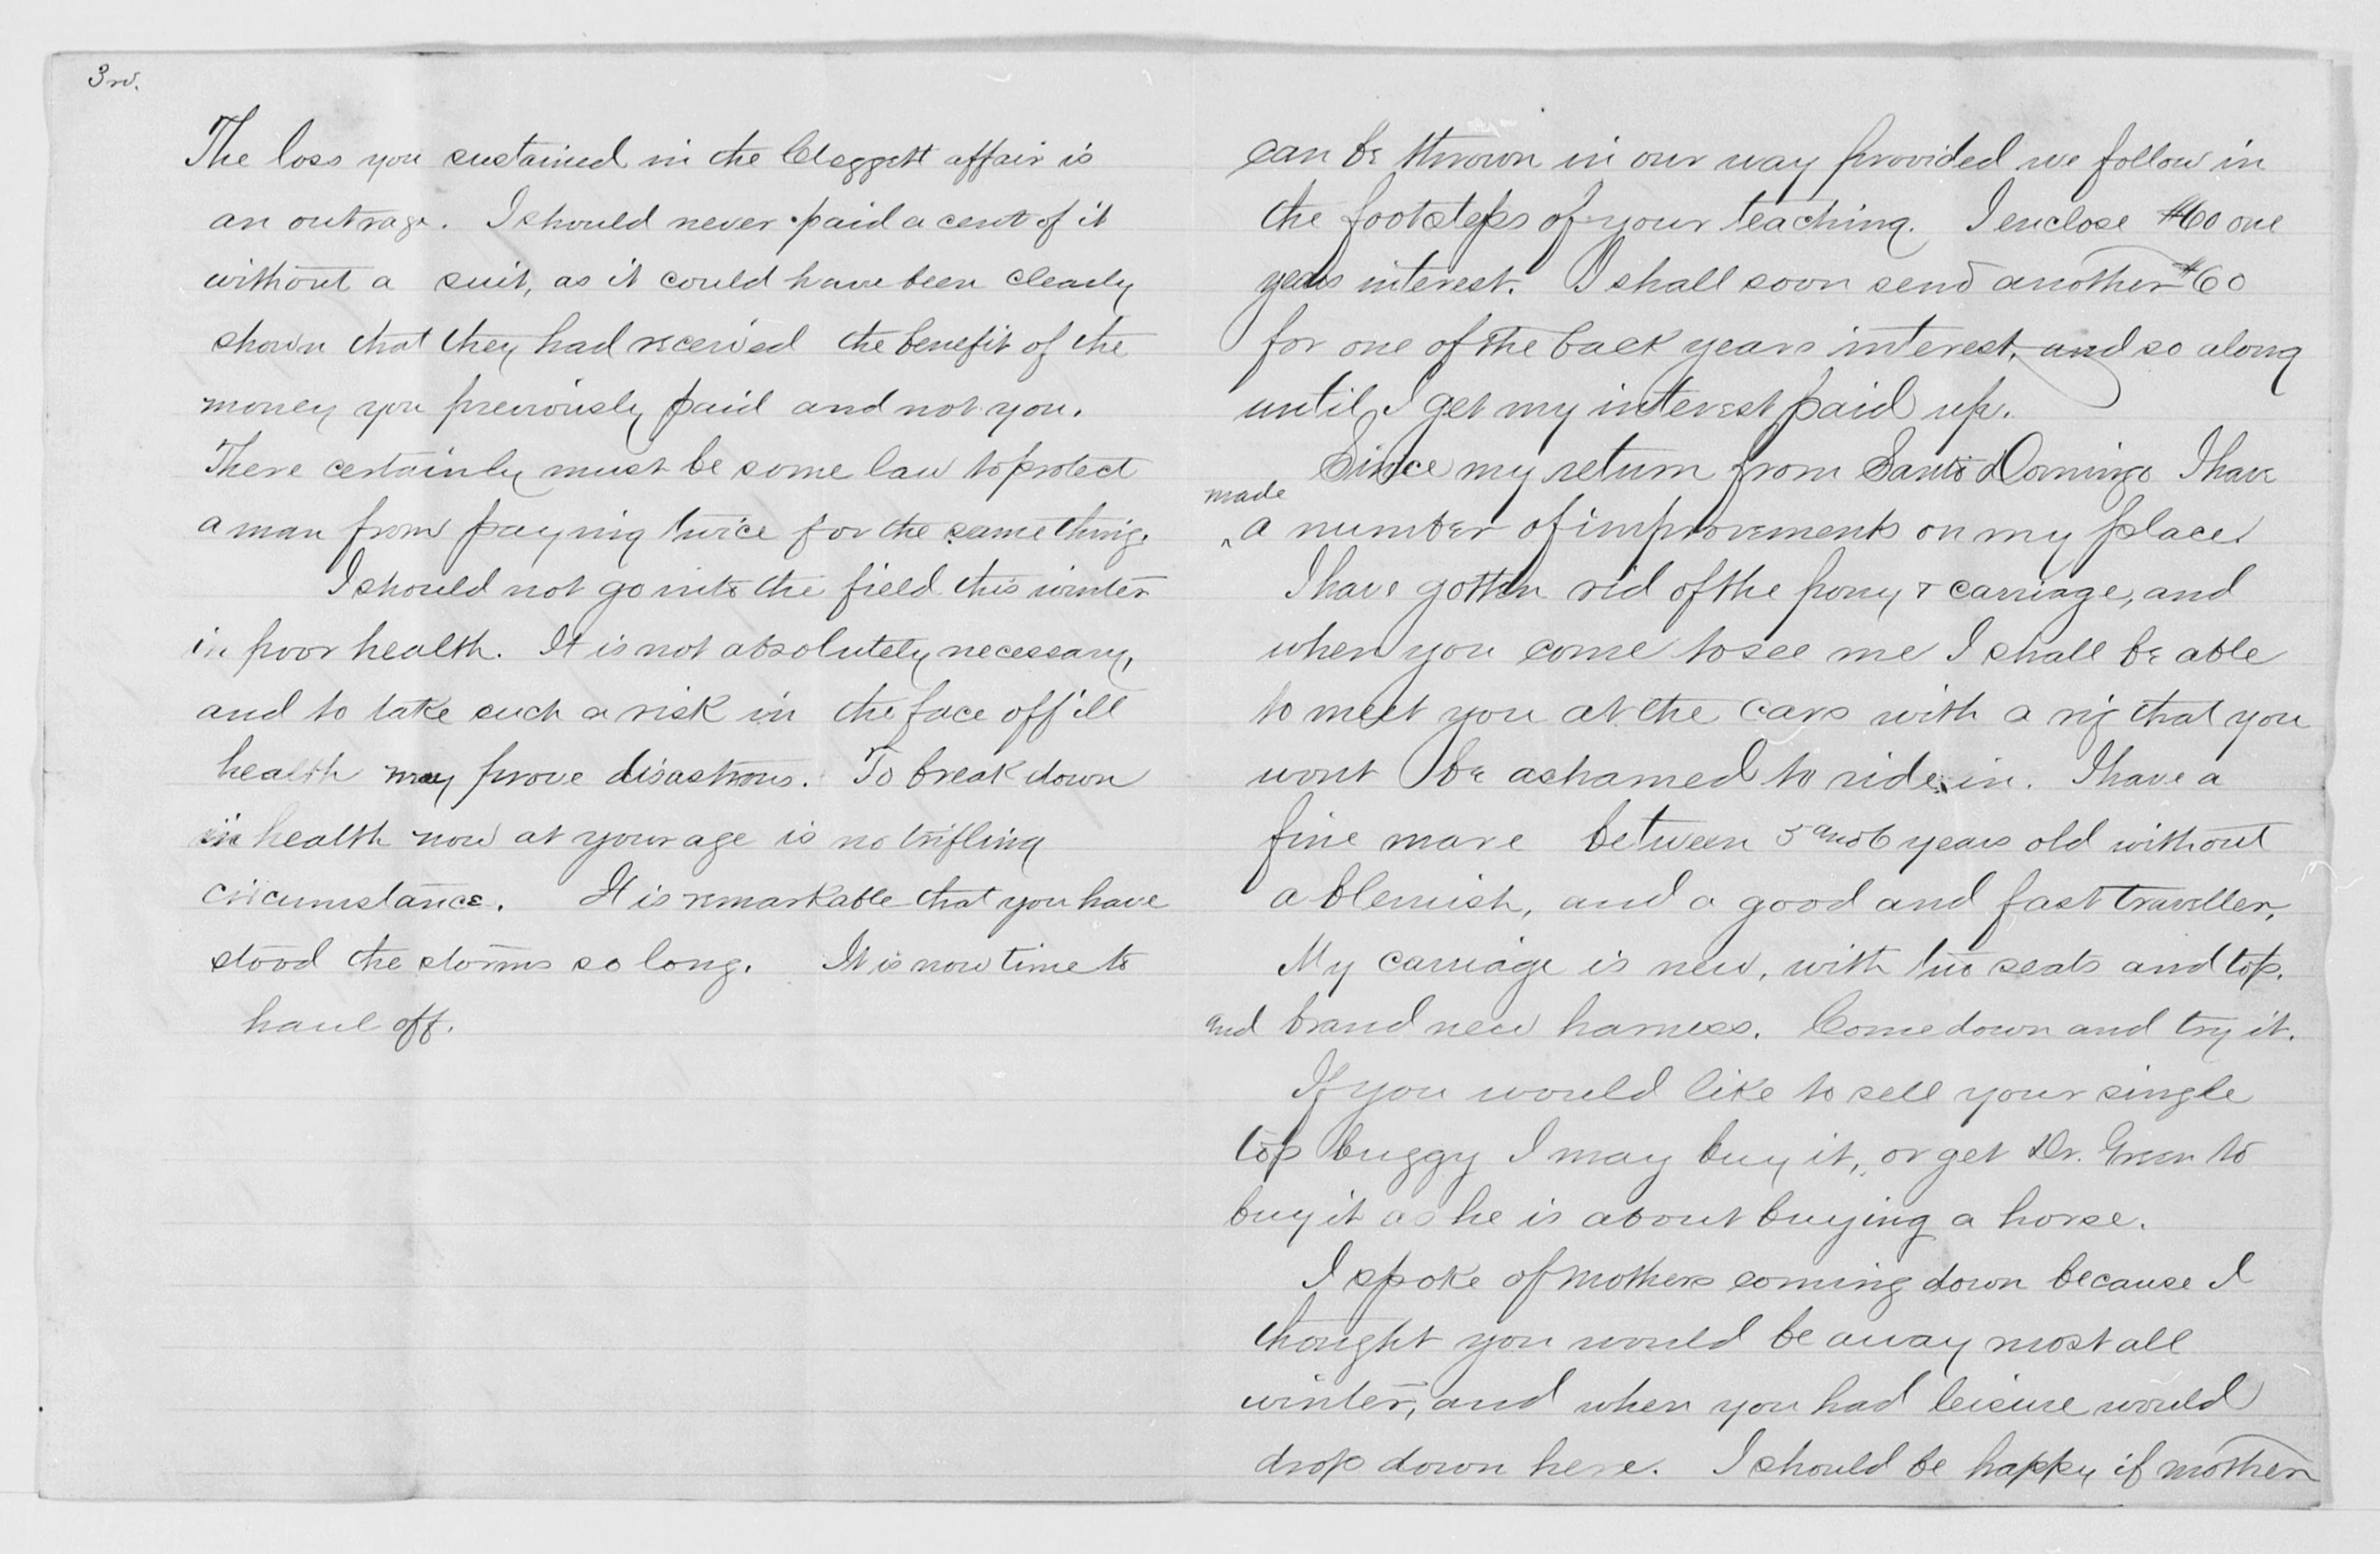 3rd.
The loss you sustained in the Claggett affair is
an outrage. I should never paid a cent of it
without a suit, as it could have been clearly
shown that they had received the benefit of the
money you previously paid and not you.
There certainly must be some law to protect
a man from paying twice for the same thing.
I should not go into the field this winter
in poor health. It is not absolutely necessary,
and to take such a risk in the face off ill
health may prove disastrous. To break down
in health now at your age is no trifling
circumstance. It is remarkable that you have
stood the storms so long. It is now time to
haul off.
can be thrown in our way provided we follow in
the footsteps of your teaching. I enclose $60 one
years interest. I shall soon send another $60
for one of the back years interest, and so along
until I get my interest paid up.
Since my return from Santo Domingo I have
made
^ a number of improvements on my place.
I have gotten rid of the pony & carriage, and
when you come to see me I shall be able
to meet you at the cars with a rig that you
wont be ashamed to ride in. I have a
fine mare between 5 and 6 years old without
a blemish, and a good and fast traveller.
My carriage is new, with two seats and top.
and brand new harness. Come down and try it.
If you would like to sell your single
top buggy I may buy it, or get Dr. Green to
buy it as he is about buying a horse.
I spoke of mothers coming down because I
thought you would be away most all
winter, and when you had leisure would
drop down here. I should be happy if mother